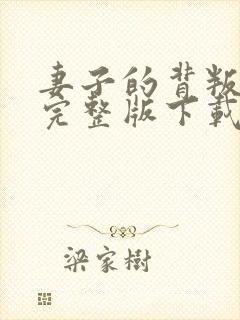 妻子的背叛
完整版下载
梁家樹